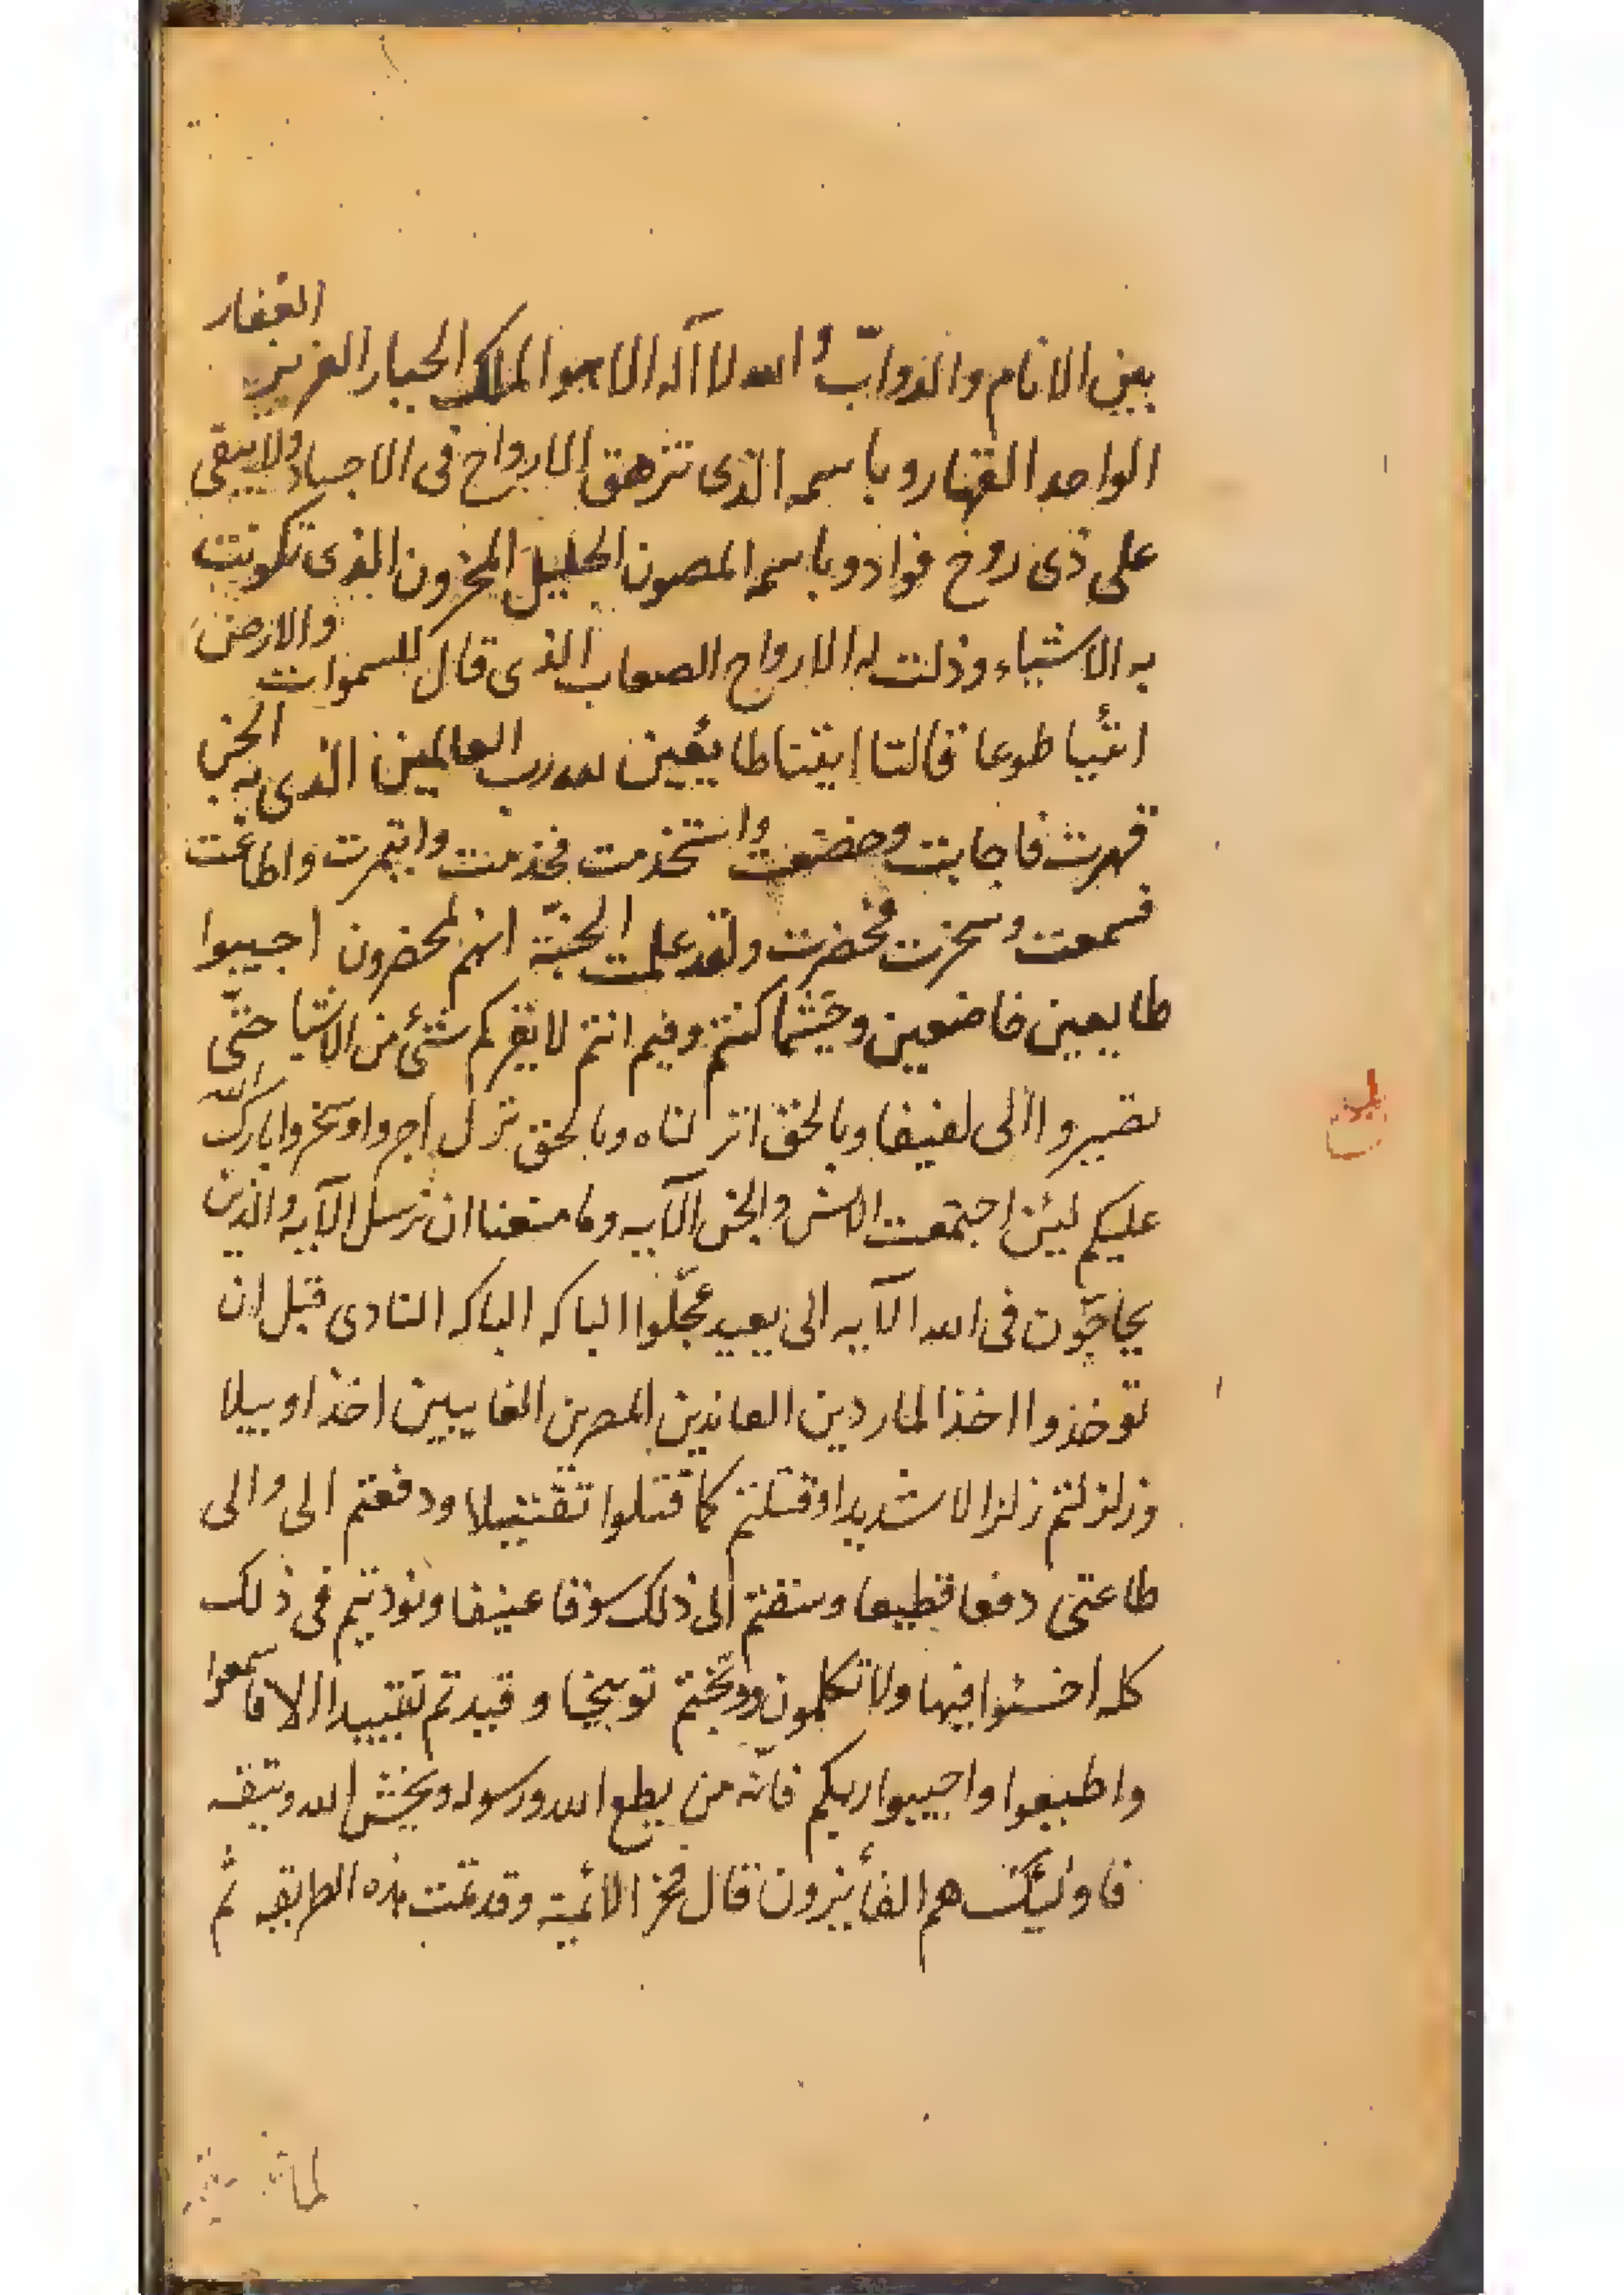 بين الانام والدوابّ والله لا اله الا هو الملك الجبار العزيز الغفار
الواحد القهار وباسمه الذى تزهق الارواح فى الاجساد ولا يبقى
على ذى روح فواد وباسمه المصون الجليل المخزون الذى تكونت
به الاشياء وذلت له الارواح الصعاب الذى قال للسموات والارض
ائتيا طوعا قالتا اتينا طايعين لله رب العالمين الذى به الجن
قهرت فاجابت وخضعت واستخدمت فخدمت وايتمرت واطاعت
فسمعت وسخرت فحضرت ولقد علمت الجنّة انهم لمحضرون اجيبوا
طايعين خاضعين وحيثما كنتم وفيم انتم لا يغركم شئ من الاشيا حتّى
تصيروا الى لفيفا وبالحق انزلناه وبالحق نزل اجروا وسخروا بارك الله
عليكم ليئن اجتمعت الانس والجن الآيه وما منعنا ان نرسل الآيه والذين
يحاجّون فى الله الآيه الى بعيد عجّلوا الباكه الباكه النادى قبل ان
توخذوا اخذ الماردين العاندين المصرين الغايبين اخذا وبيلا
وزلزلتم زلزالا شديدا وقتلتم كما قتلوا تقتيلا ودفعتم الى والى
طاعتى دفعا قطيعا وسقتم الى ذلك سوقا عنيفا ونوديتم فى ذلك
كله اخسئوا فيها ولا تكلمون ووبّختم توبيخا وقيدتم تقييدا الا فاسمعوا
واطيعوا واجيبوا ربكم فانّه من يطع الله ورسوله ويخش الله ويتقه
فاوليئك هم الفأيزون قال فخر الائمية وقد تمت هذه الطريقه ثم